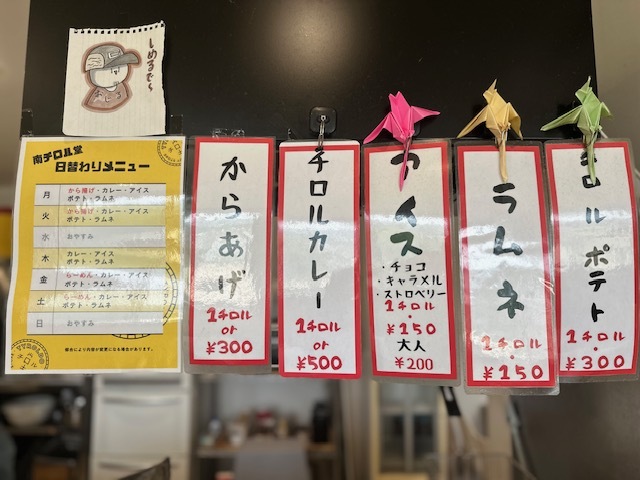 しめるで〜
南チロル堂
日替わりメニュー
月
から揚げ・カレー・アイス
ポテト・ラムネ
火
から揚げ・カレー・アイス
ポテト・ラムネ
水
おやすみ
木
カレー・アイス
ポテト・ラムネ
金
らーめん・カレー・アイス
ポテト・ラムネ
土
らーめん・カレー・アイス
ポテト・ラムネ
日
おやすみ
都合により内容が変更になる場合があります。
からあげ
1チロル
or
¥300
チロルカレー
1チロル
or
¥500
アイス
・チョコ
・キャラメル
・ストロベリー
1チロル
・
¥150
大人
¥200
ラムネ
1チロル
・
¥150
チロルポテト
1チロル
・
¥300